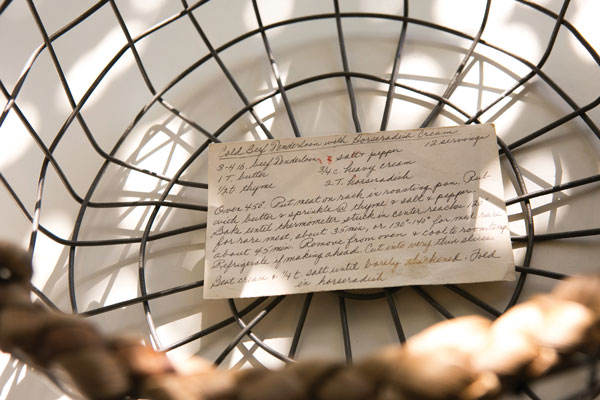 Cold Beef Tenderloin with Horseradish Cream
3-4 lb. beef tenderloin, salt & pepper 12 servings
1 T. butter 3/4 c. heavy cream
1/2 t. thyme 2 T. horseradish
Oven 450° Put meat on rack in roasting pan. Rub
with butter & sprinkle thyme & salt & pepper.
Bake until thermometer stuck in center reaches 120°
for rare meat, about 35 min, or 130°-140° for med. rare
about 45 min. Remove from oven & cool to room temp.
Refrigerate if making ahead. Cut into very thin slices
Beat cream & 1/4 t. salt until barely thickened. Fold
in horseradish